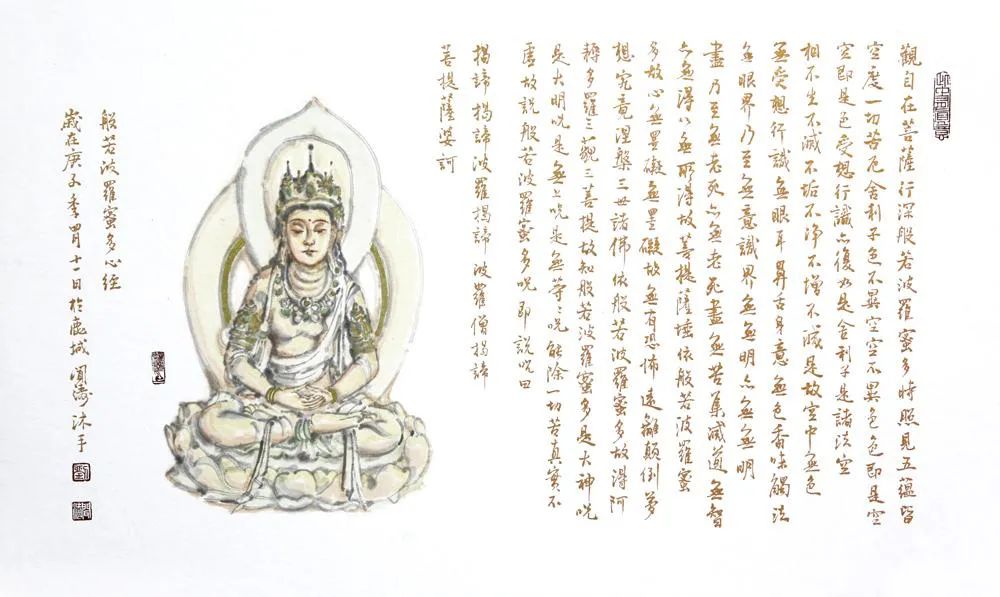 觀自在菩薩行深般若波羅蜜多時照見五蘊皆
空度一切苦厄舍利子色不異空空不異色色即是空
空即是色受想行識亦復如是舍利子是諸法空
相不生不滅不垢不淨不增不減是故空中無色
無受想行識無眼耳鼻舌身意無色香味觸法
無眼界乃至無意識界無無明亦無無明
盡乃至無老死亦無老死盡無苦集滅道無智
亦無得以無所得故菩提薩埵依般若波羅蜜
多故心無罣礙無罣礙故無有恐怖遠離顛倒夢
想究竟涅槃三世諸佛依般若波羅蜜多故得阿
耨多羅三藐三菩提故知般若波羅蜜多是大神咒
是大明咒是無上咒是無等等咒能除一切苦真實不
虛故說般若波羅蜜多咒即說咒曰
揭諦揭諦波羅揭諦波羅僧揭諦
菩提薩婆訶
般若波羅蜜多心經
歲在庚子年四月十一日於鹿城聞濤沐手
劉